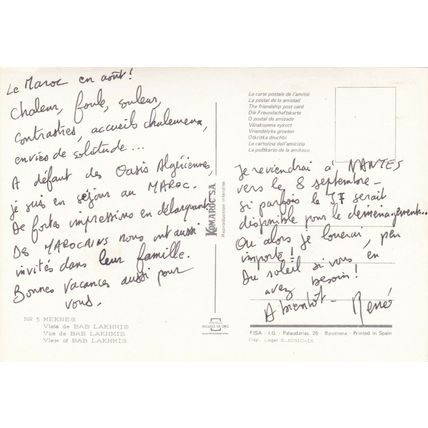 Le Maroc en août!
Chaleur, foule, souleur,
contrastées, accueils chaleureux,
envies de solitude...
A défaut des Oasis Algériennes
je suis en séjour au MAROC.
De fortes impressions en débarquant.
Des MAROCAINS nous ont aussi
invités dans leur famille.
Bonnes vacances aussi pour
vous.
NR 5 MEKNES
Vista de BAB LAKHMIS
Vue de BAB LAKHMIS
View of BAB LAKHMIS
KOMAROC S.A.
La carte postale de l'amitié
La postal de la amistad
The friendship post card
Die Freundschaftskarte
O postal da amizade
Vriendelyke groeten
La cartolina dell'amicizia
Je reviendrai à NANTES
vers le 8 septembre -
si parfois le J7 serait
disponible pour le déménagement...
Ou alors je louerai, peu
importe!
Du soleil si vous en
avez besoin!
A bientôt - René
FISA - I.G. - Palaudarias, 26 - Barcelona - Printed in Spain
Dep. Legal B.